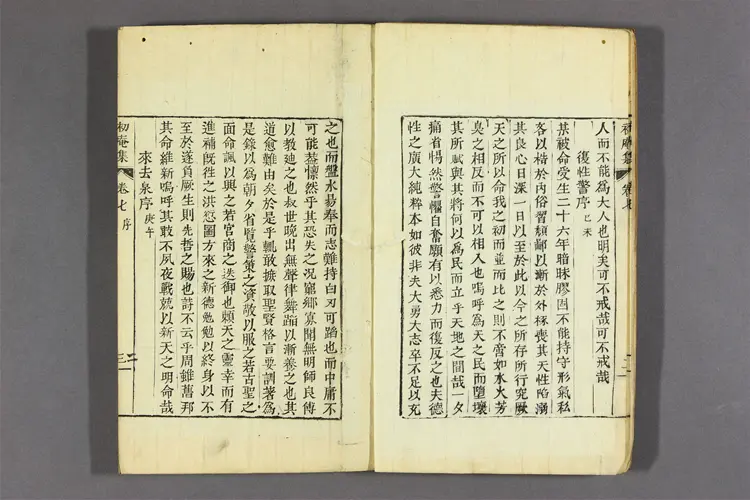 人而不能爲大人也明矣可不戒哉可不戒哉
復性警序 己未
某被命受生二十六年暗昧膠固不能持守形氣私
客以梏於內俗習頹鄙以漸於外椓喪其天性陷溺
其良心日深一日以至於此以今之所存所行究厥
天之所以命我之初而並而比之則不啻如水火芳
臭之相反而不可以相入也嗚呼爲天之民而墮壞
其所賦與其將何以爲民而立乎天地之間哉一夕
痛省惕然警懼自奮願有以悉力而復反之也夫德
性之廣大純粹本如彼非夫大勇大志卒不足以充
卷七
之也而盤水易奉而志難持白刃可蹈也而中庸不
可能蓋懍然乎其恐失之况窮鄉寡聞無明師良傅
以教迪之也叔世晩出無聲律舞蹈以漸養之也其
道愈難由矣於是乎輒敢摭取聖賢格言要訓著爲
是錄以爲朝夕省覽警策之資敬以服之若古聖之
面命諷以興之若宮商之迭御也賴天之靈幸而有
進補旣徃之洪愆圖方來之新德勉勉以終身以不
至於遂負厥生則先哲之賜也詩不云乎周雖舊邦
其命維新嗚呼其敢不夙夜戰兢以新天之明命哉
來去泉序 庚午
初庵集
卷七 序
三